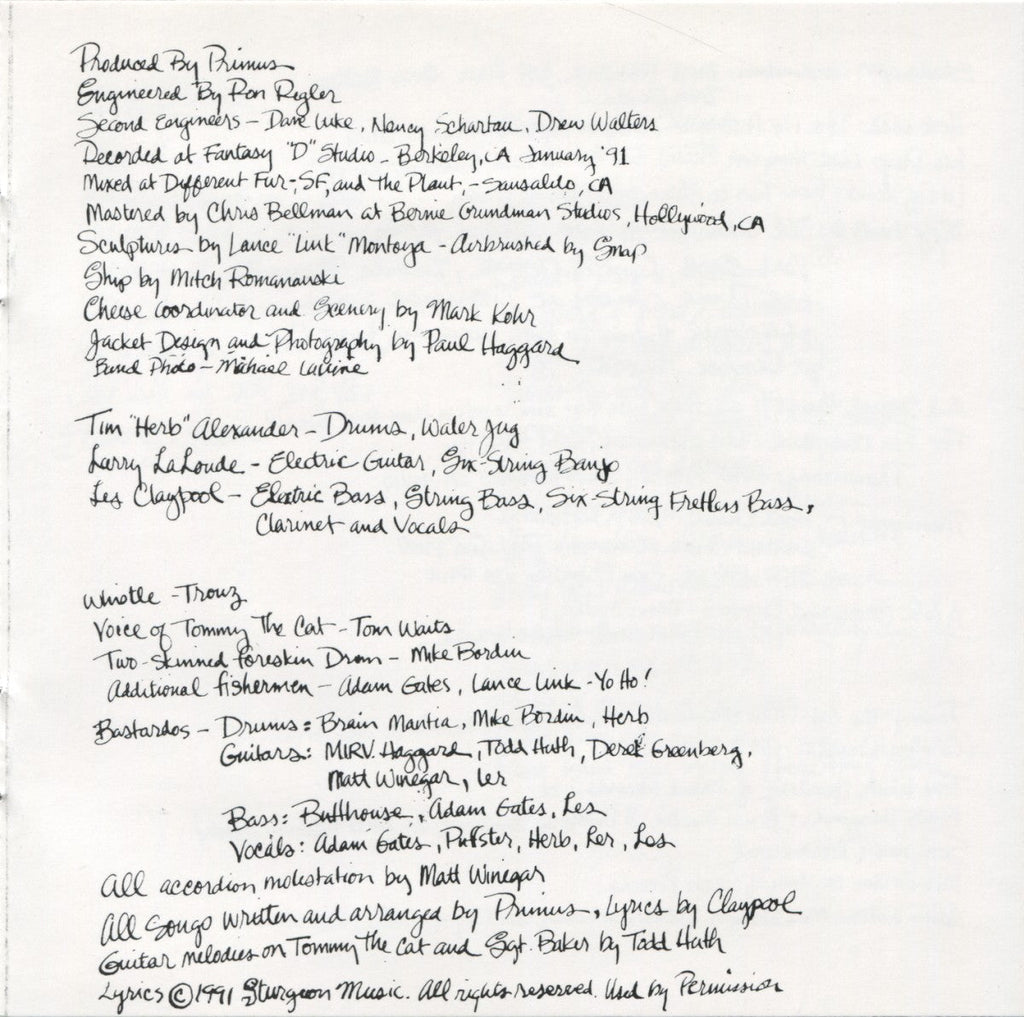 Produced By Primus
Engineered By Ron Rigler
Second Engineers - Dave Luke, Nancy Schartau, Drew Walters
Recorded at Fantasy "D" Studio - Berkeley, CA January '91
Mixed at Different Fur-, SF, and The Plant, - Sausalito, CA
Mastered by Chris Bellman at Bernie Grundman Studios, Hollywood, CA
Sculptures by Lance "Link" Montoya - Airbrushed by Snap
Ship by Mitch Romanauski
Cheese Coordinator and Scenery by Mark Kohr
Jacket Design and Photography by Paul Haggard
Band Photo - Michael Lavine
Tim "Herb" Alexander - Drums, Water Jug
Larry LaLonde - Electric Guitar, Six-String Banjo
Les Claypool - Electric Bass, String Bass, Six-String Fretless Bass,
Clarinet and Vocals
Whistle - Trouz
Voice of Tommy The Cat - Tom Waits
Two-Skinned foreskin Drum - Mike Bordin
Additional fishermen - Adam Gates, Lance Link - Yo Ho!
Bastardos - Drums: Brain Mantia, Mike Bordin, Herb
Guitars: MIRV. Haggard, Todd Huth, Derek Greenberg,
Matt Winegar, Ler
Bass: Butthouse, Adam Gates, Les
Vocals: Adam Gates, Puffster, Herb, Ler, Les
All accordion molestation by Matt Winegar
All Songs Written and arranged by Primus, Lyrics by Claypool
Guitar melodies on Tommy The Cat and Sgt. Baker by Todd Huth
Lyrics ©1991 Sturgeon Music. All rights reserved. Used by Permission